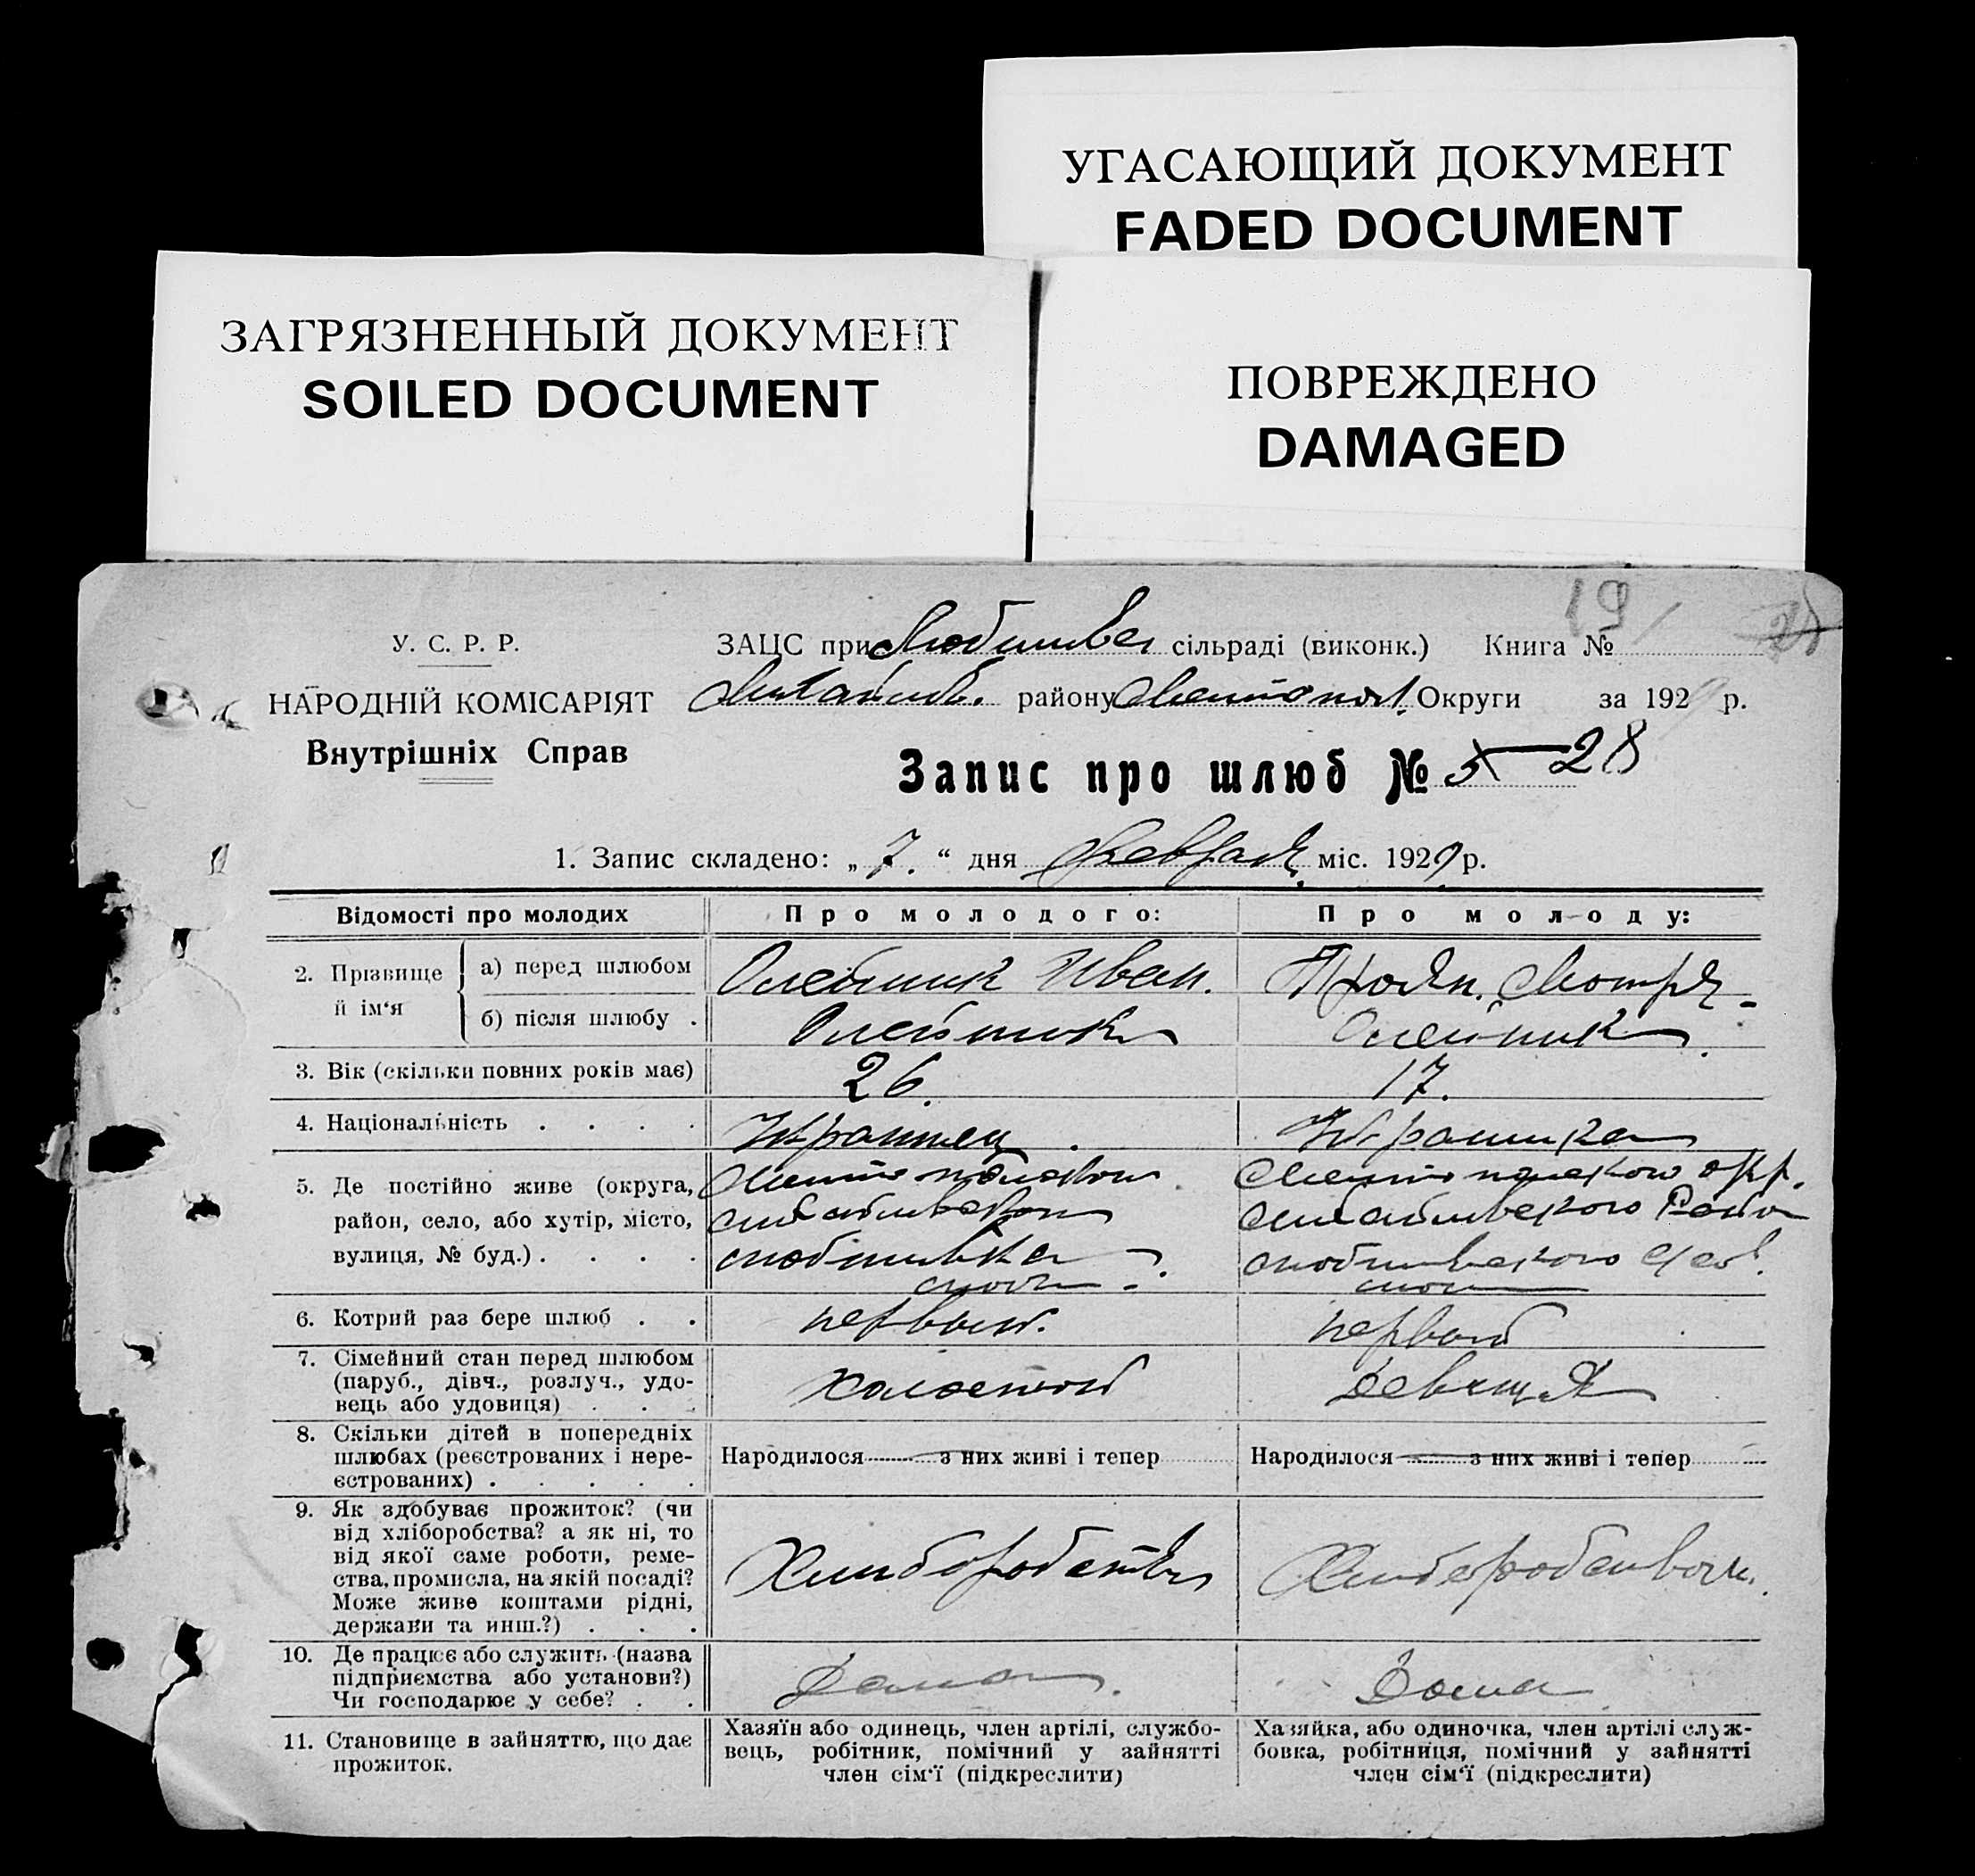 УГАСАЮЩИЙ ДОКУМЕНТ
FADED DOCUMENT
ЗАГРЯЗНЕННЫЙ ДОКУМЕНТ
SOILED DOCUMENT
ПОВРЕЖДЕНО
DAMAGED
19
У. С. Р. Р.
ЗАЦС при сільраді (виконк.) Книга №
НАРОДНІЙ КОМІСАРІЯТ
району Округи за 1929 р.
Внутрішніх Справ
Запис про шлюб № 5 28
1. Запис складено: „7.“ дня Февраля міс. 1929 р.
Відомості про молодих
Про молодого:
Про молоду:
2. Прізвище й ім'я
а) перед шлюбом
Олейник Иван.
Мотря
б) після шлюбу .
Олейник
Олейник
3. Вік (скільки повних років має)
26.
17.
4. Національність . . . .
Украинец
Украинка
5. Де постійно живе (округа,
район, село, або хутір, місто,
вулиця, № буд.) . . . .
6. Котрий раз бере шлюб . .
первый.
первый
7. Сімейний стан перед шлюбом
(паруб., дівч., розлуч., удо-
вець або удовиця) . . .
холостой
девица
8. Скільки дітей в попередніх
шлюбах (реєстрованих і нере-
єстрованих) . . . . .
Народилося з них живі і тепер
Народилося з них живі і тепер
9. Як здобуває прожиток? (чи
від хліборобства? а як ні, то
від якої саме роботи, реме-
ства, промисла, на якій посаді?
Може живе коштами рідні,
держави та инш.?) . . .
10. Де працює або служить (назва
підприємства або установи?)
Чи господарює у себе? . .
Дома
Дома
11. Становище в зайняттю, що дає
прожиток.
Хазяїн або одинець, член артілі, службо-
вець, робітник, помічний у зайнятті
член сім'ї (підкреслити)
Хазяйка, або одиночка, член артілі служ-
бовка, робітниця, помічний у зайнятті
член сім'ї (підкреслити)